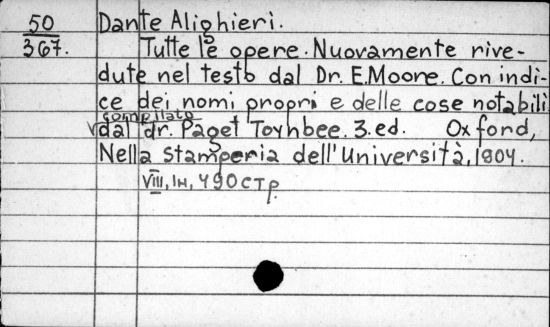 50
367.
Dante Alighieri.
Tutte le opere. Nuovamente rive-
dute nel testo dal Dr. E. Moore. Con indi-
ce dei nomi propri e delle cose notabili
compilato
dal dr. Paget Toynbee. 3. ed. Oxford,
Nella stamperia dell'Università, 1904.
VIII, 1н, 490 стр.